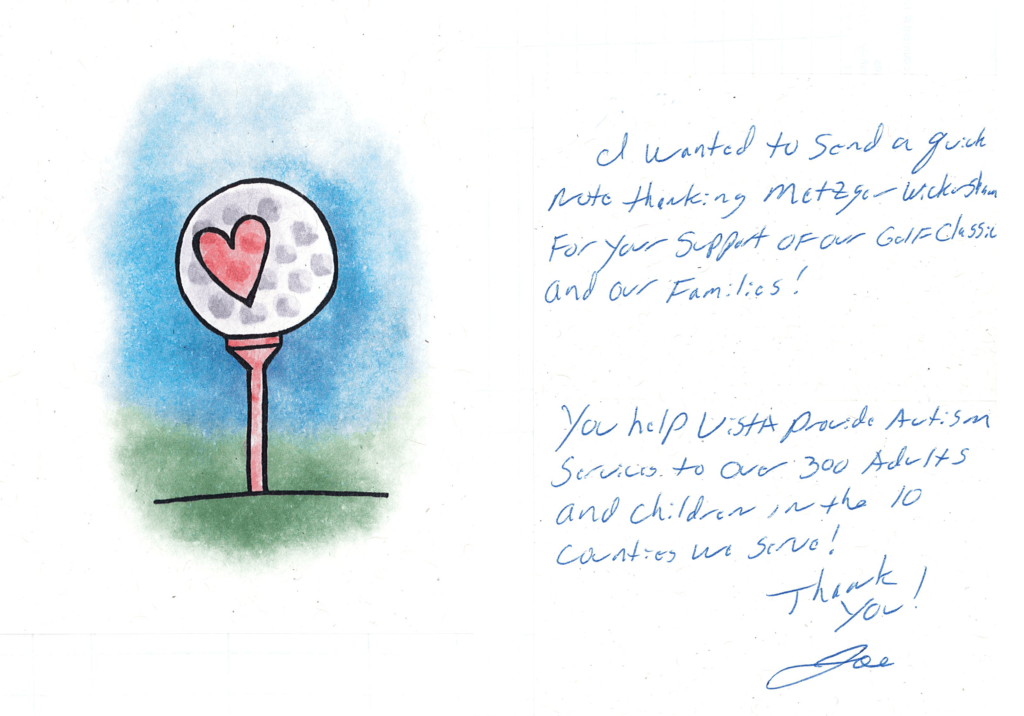 I wanted to send a quick
note thanking Metzger Wickersham
For your support of our Golf Classic
and our Families!
You help Vista provide Autism
Services to over 300 Adults
and children in the 10
counties we serve!
Thank
You!
Joe